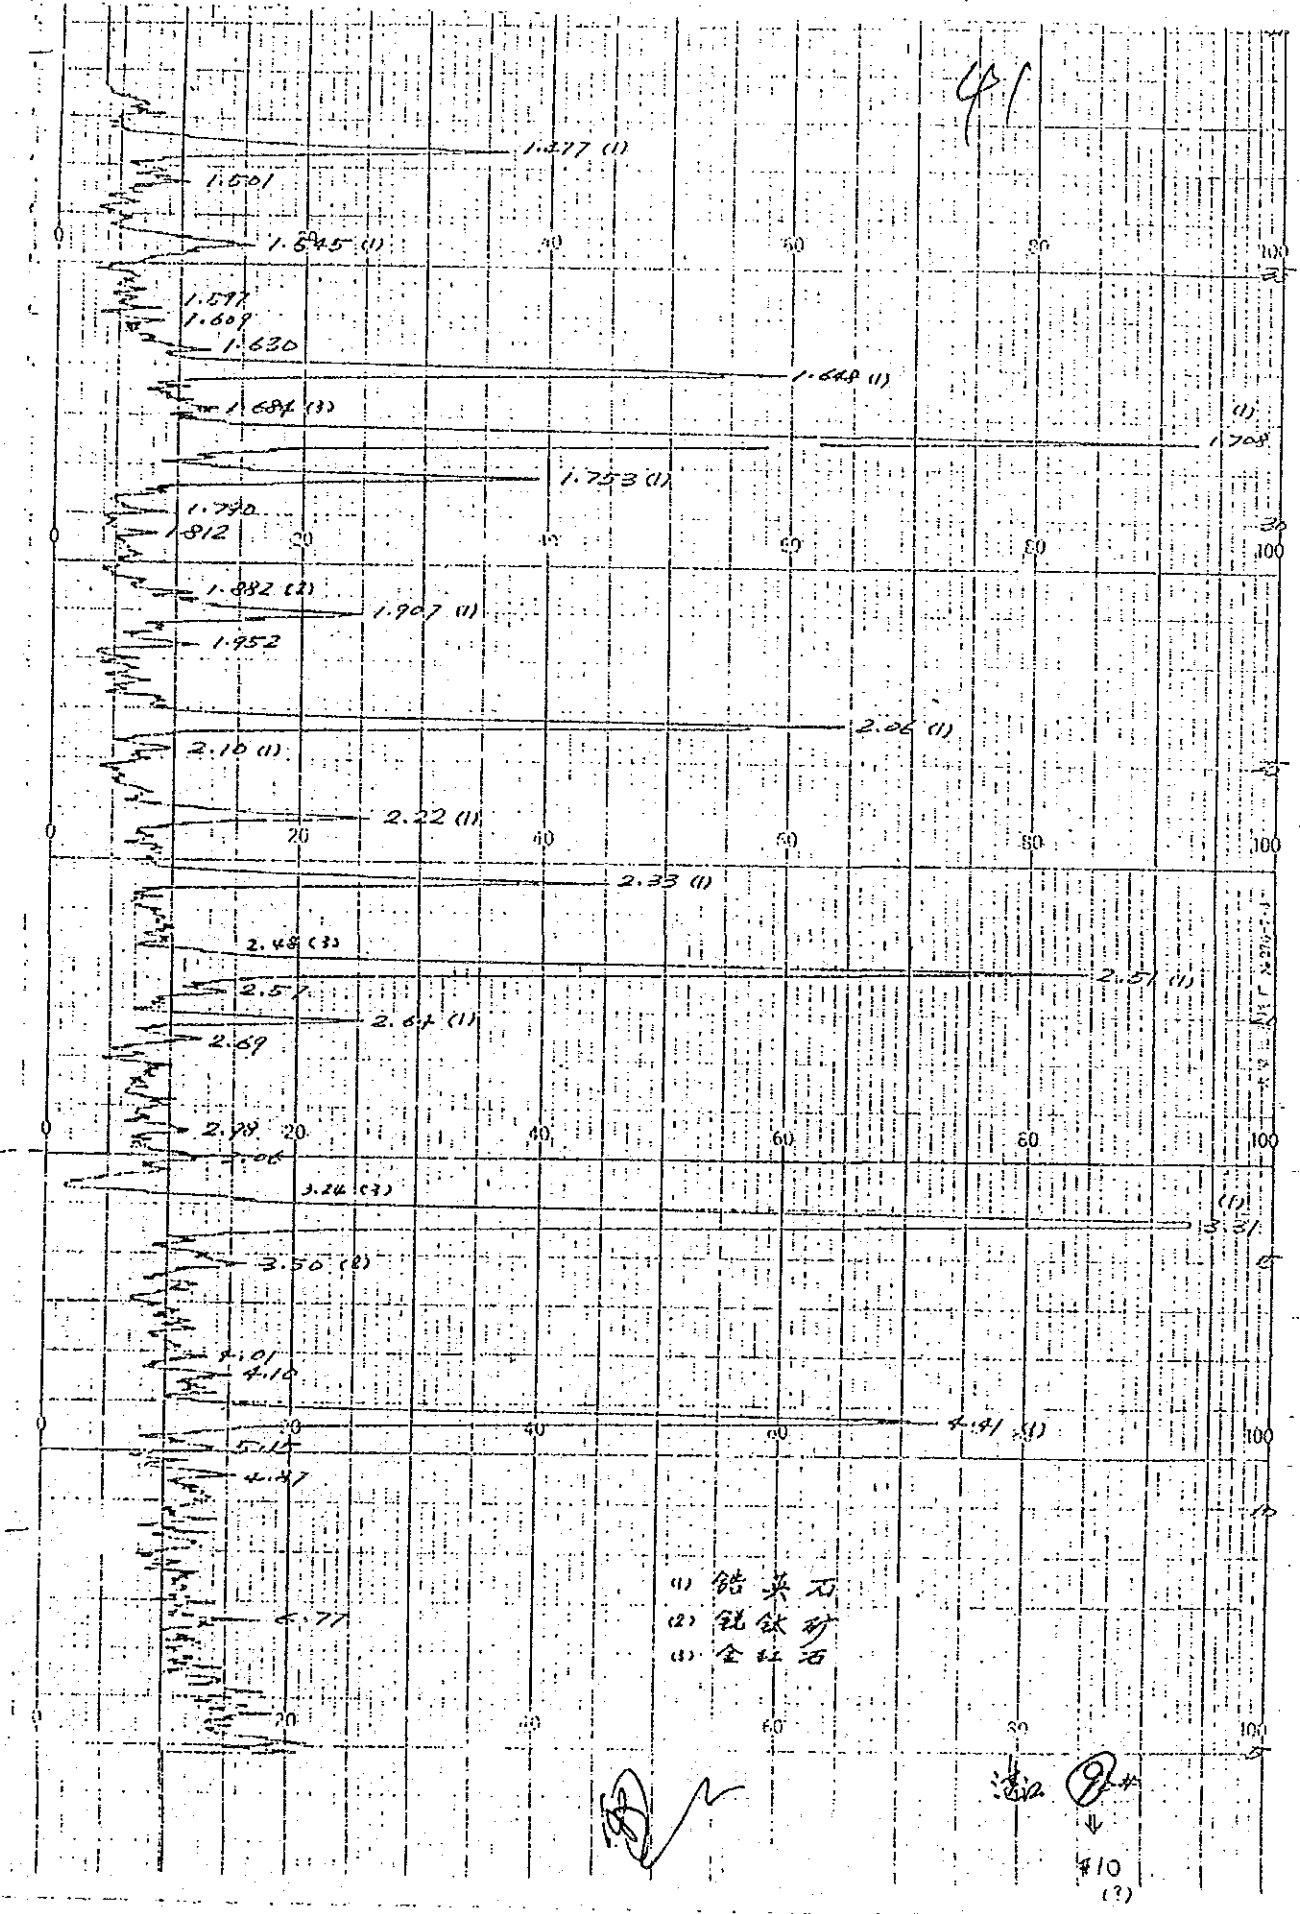 41
1.477 (1)
1.501
1.545 (1)
0 20 40 60 80 100
1.597
1.609
1.630
1.648 (1)
1.684 (3)
(1)
1.708
1.753 (1)
1.790
1.812
30
0 20 40 60 80 100
1.882 (2)
1.907 (1)
1.952
2.06 (1)
2.10 (1)
2.22 (1)
0 20 40 60 80 100
2.33 (1)
2.48 (3)
2.51 (1)
2.57
2.64 (1)
2.69
2.98
0 20 40 60 80 100
3.06
3.24 (3)
(1)
3.31
3.50 (2)
4.01
4.10
4.41 (1)
0 20 40 60 80 100
5.15
4.47
10
(1) 锆英石
(2) 锐钛矿
(3) 金红石
6.77
0 20 40 60 80 100
5
9#
⇓
#10
(?)